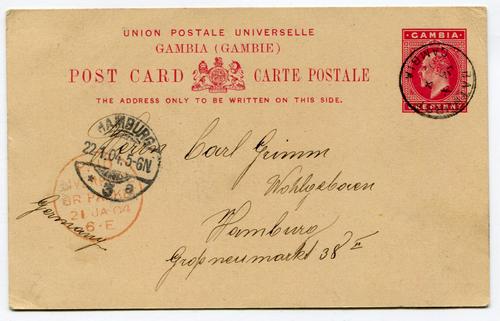 UNION POSTALE UNIVERSELLE
GAMBIA (GAMBIE)
GAMBIA
POST CARD CARTE POSTALE
THE ADDRESS ONLY TO BE WRITTEN ON THIS SIDE.
ONE PENNY
GAMBIA
HAMBURG
22.1.04.5-6N
Herrn
Carl Grimm
Wohlgeboren
BR PACKET
21 JA 04
6.E
Germany
Hamburg
Großneumarkt 38 II